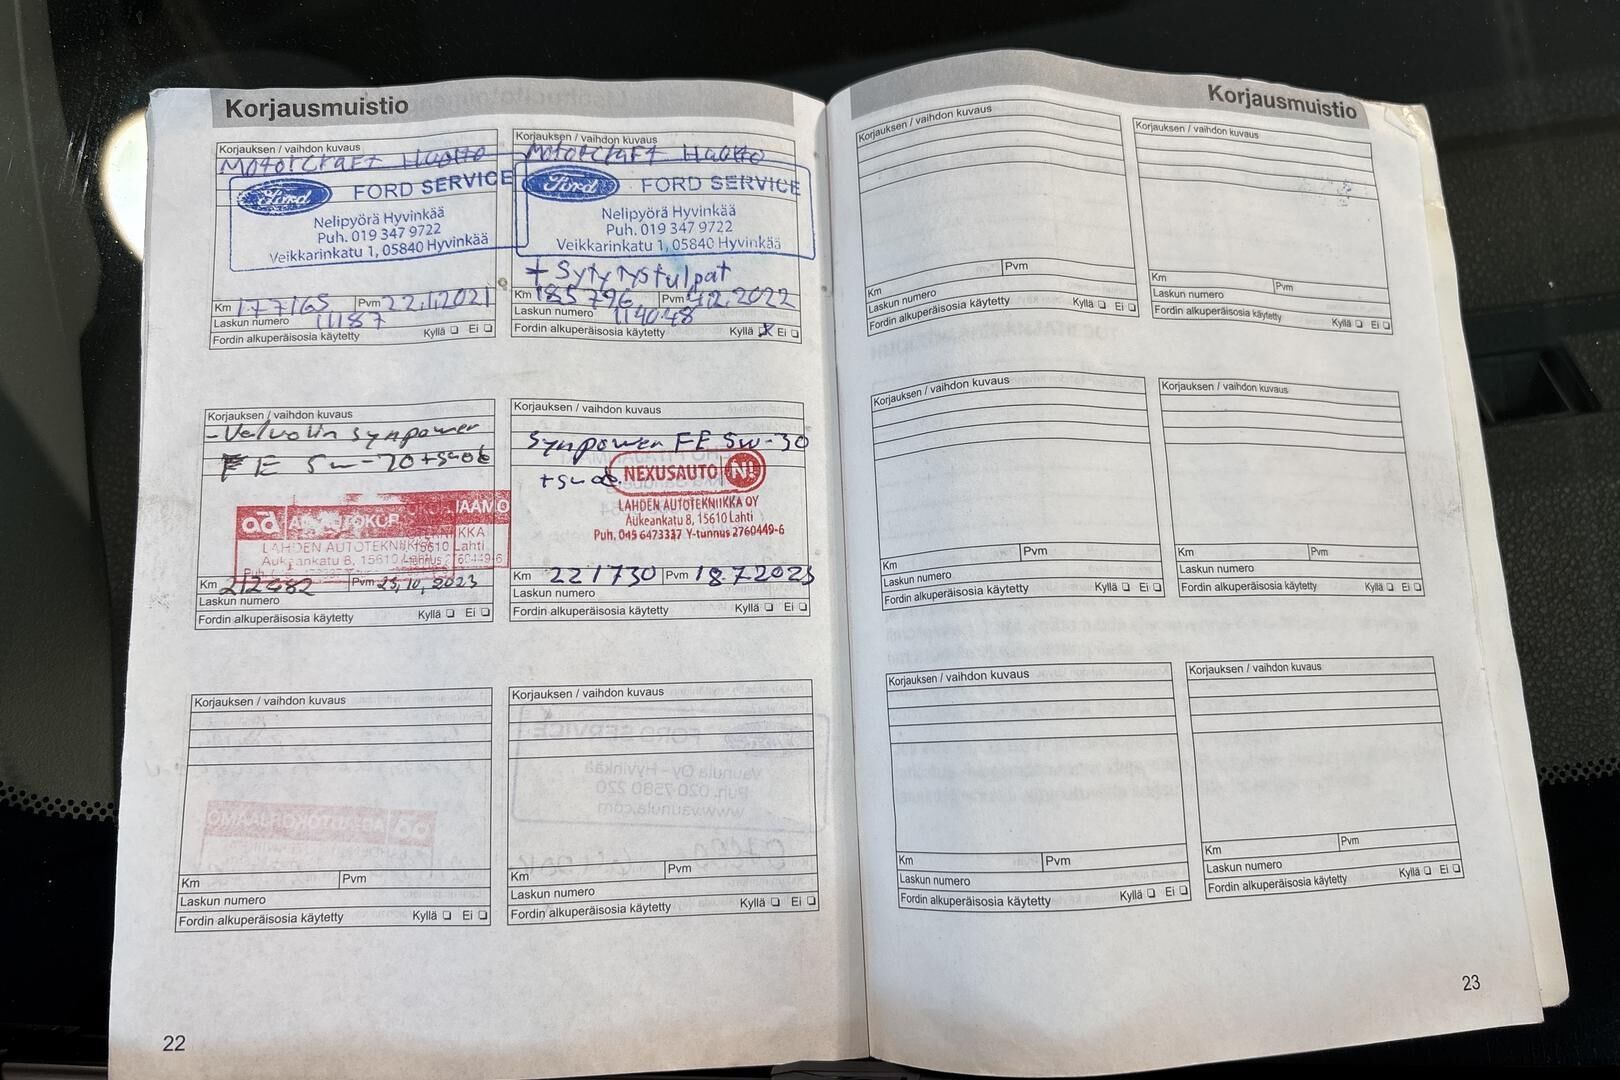 Korjausmuistio
Korjauksen / vaihdon kuvaus
Motorcraft Huolto
Ford FORD SERVICE
Nelipyörä Hyvinkää
Puh. 019 347 9722
Veikkarinkatu 1, 05840 Hyvinkää
Km 177165 Pvm 22.1.2021
Laskun numero 11187
Fordin alkuperäisosia käytetty Kyllä Ei
Korjauksen / vaihdon kuvaus
Motorcraft Huolto
Ford FORD SERVICE
Nelipyörä Hyvinkää
Puh. 019 347 9722
Veikkarinkatu 1, 05840 Hyvinkää
+ Sytytystulpat
Km 185796 Pvm 4.2.2022
Laskun numero 114048
Fordin alkuperäisosia käytetty Kyllä X Ei
Korjauksen / vaihdon kuvaus
- Valvolin synpower
FE 5w-20 + suod
ad
LAHDEN AUTOTEKNIIKKA
Aukeankatu 8, 15610 Lahti
Km 212982 Pvm
Laskun numero
Fordin alkuperäisosia käytetty Kyllä Ei
Korjauksen / vaihdon kuvaus
Synpower FE 5w-30
+ suod.
NEXUSAUTO N!
LAHDEN AUTOTEKNIIKKA OY
Aukeankatu 8, 15610 Lahti
Puh. 045 6473337 Y-tunnus 2760449-6
Km 221730 Pvm 18.7.2023
Laskun numero
Fordin alkuperäisosia käytetty Kyllä Ei
Korjauksen / vaihdon kuvaus
Km Pvm
Laskun numero
Fordin alkuperäisosia käytetty Kyllä Ei
Korjauksen / vaihdon kuvaus
Km Pvm
Laskun numero
Fordin alkuperäisosia käytetty Kyllä Ei
22
Korjausmuistio
Korjauksen / vaihdon kuvaus
Km Pvm
Laskun numero
Fordin alkuperäisosia käytetty Kyllä Ei
Korjauksen / vaihdon kuvaus
Km Pvm
Laskun numero
Fordin alkuperäisosia käytetty Kyllä Ei
Korjauksen / vaihdon kuvaus
Km Pvm
Laskun numero
Fordin alkuperäisosia käytetty Kyllä Ei
Korjauksen / vaihdon kuvaus
Km Pvm
Laskun numero
Fordin alkuperäisosia käytetty Kyllä Ei
Korjauksen / vaihdon kuvaus
Km Pvm
Laskun numero
Fordin alkuperäisosia käytetty Kyllä Ei
Korjauksen / vaihdon kuvaus
Km Pvm
Laskun numero
Fordin alkuperäisosia käytetty Kyllä Ei
23